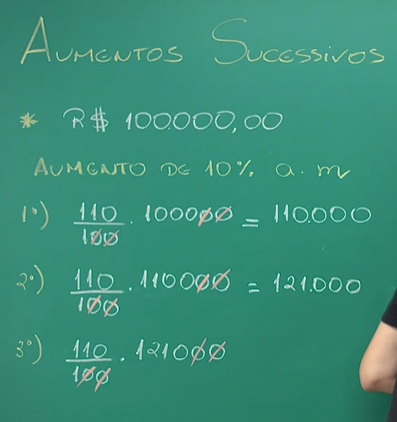 AUMENTOS SUCESSIVOS
* R$ 100000,00
AUMENTO DE 10% a.m
1º) 110/100 . 100000 = 110.000
2º) 110/100 . 110000 = 121.000
3º) 110/100 . 121000